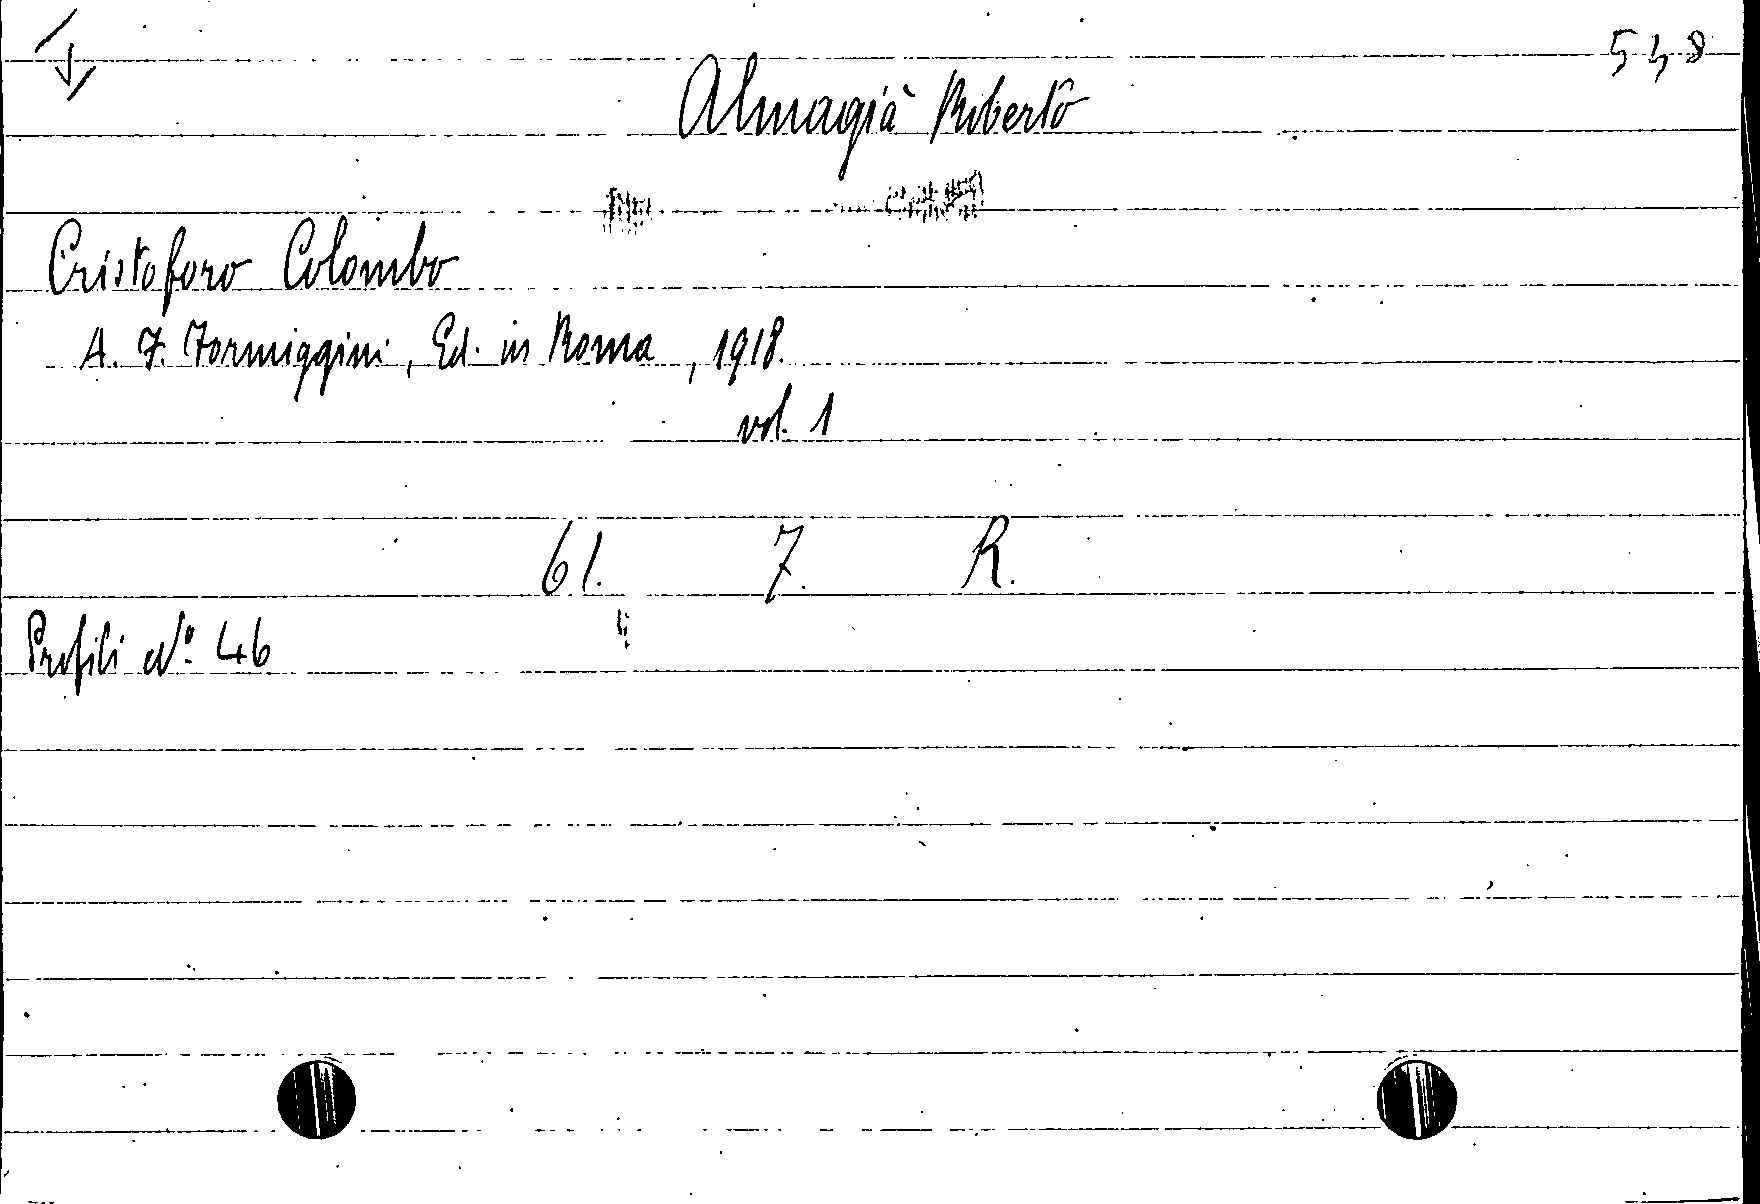 548
Almagià Roberto
Cristoforo Colombo
A. F. Formiggini, Ed. in Roma, 1918.
vol. 1
61. 7. R.
Profili No. 46